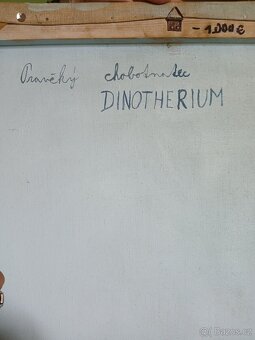 - 1.000 €
Pravěký chobotnatec
DINOTHERIUM
© Bazoš.cz